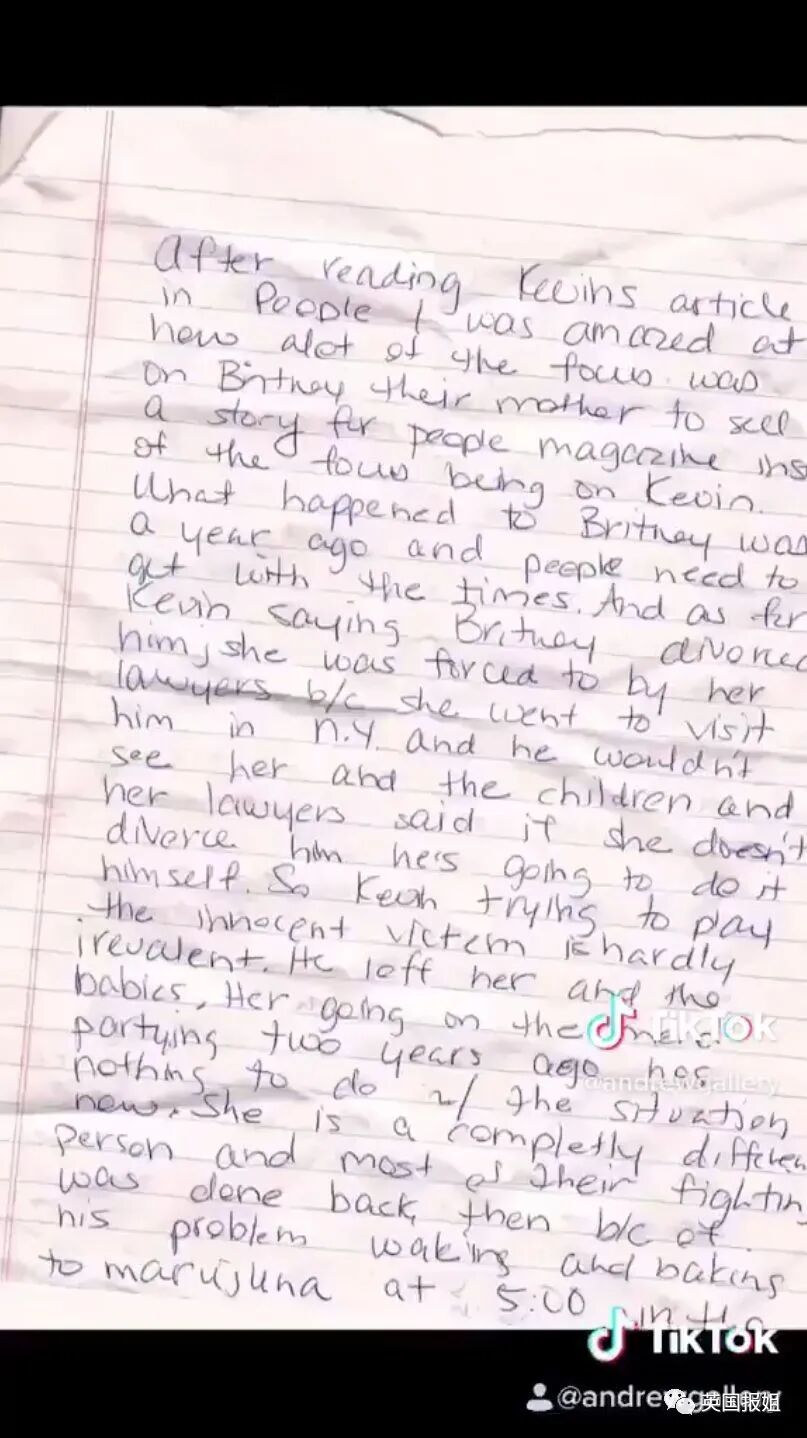 After reading Kevins article
in People I was amazed at
how alot of the focus was
on Britney their mother to sell
a story for people magazine ins
of the focus being on Kevin.
What happened to Britney was
a year ago and people need to
get with the times. And as for
Kevin saying Britney divorced
him, she was forced to by her
lawyers b/c she went to visit
him in N.Y. and he wouldn't
see her and the children and
her lawyers said if she doesn't
divorce him he's going to do it
himself. So Kevin trying to play
the innocent victem is hardly
irevalent. He left her and the
babies. Her going on the
partying two years ago has
nothing to do w/ the situation
now. She is a completly differen
person and most of their fightin
was done back then b/c of
his problem waking and baking
to marujuna at 5:00 in the
TikTok
@andrewgallery
TikTok
@andrewgallery
英国报姐